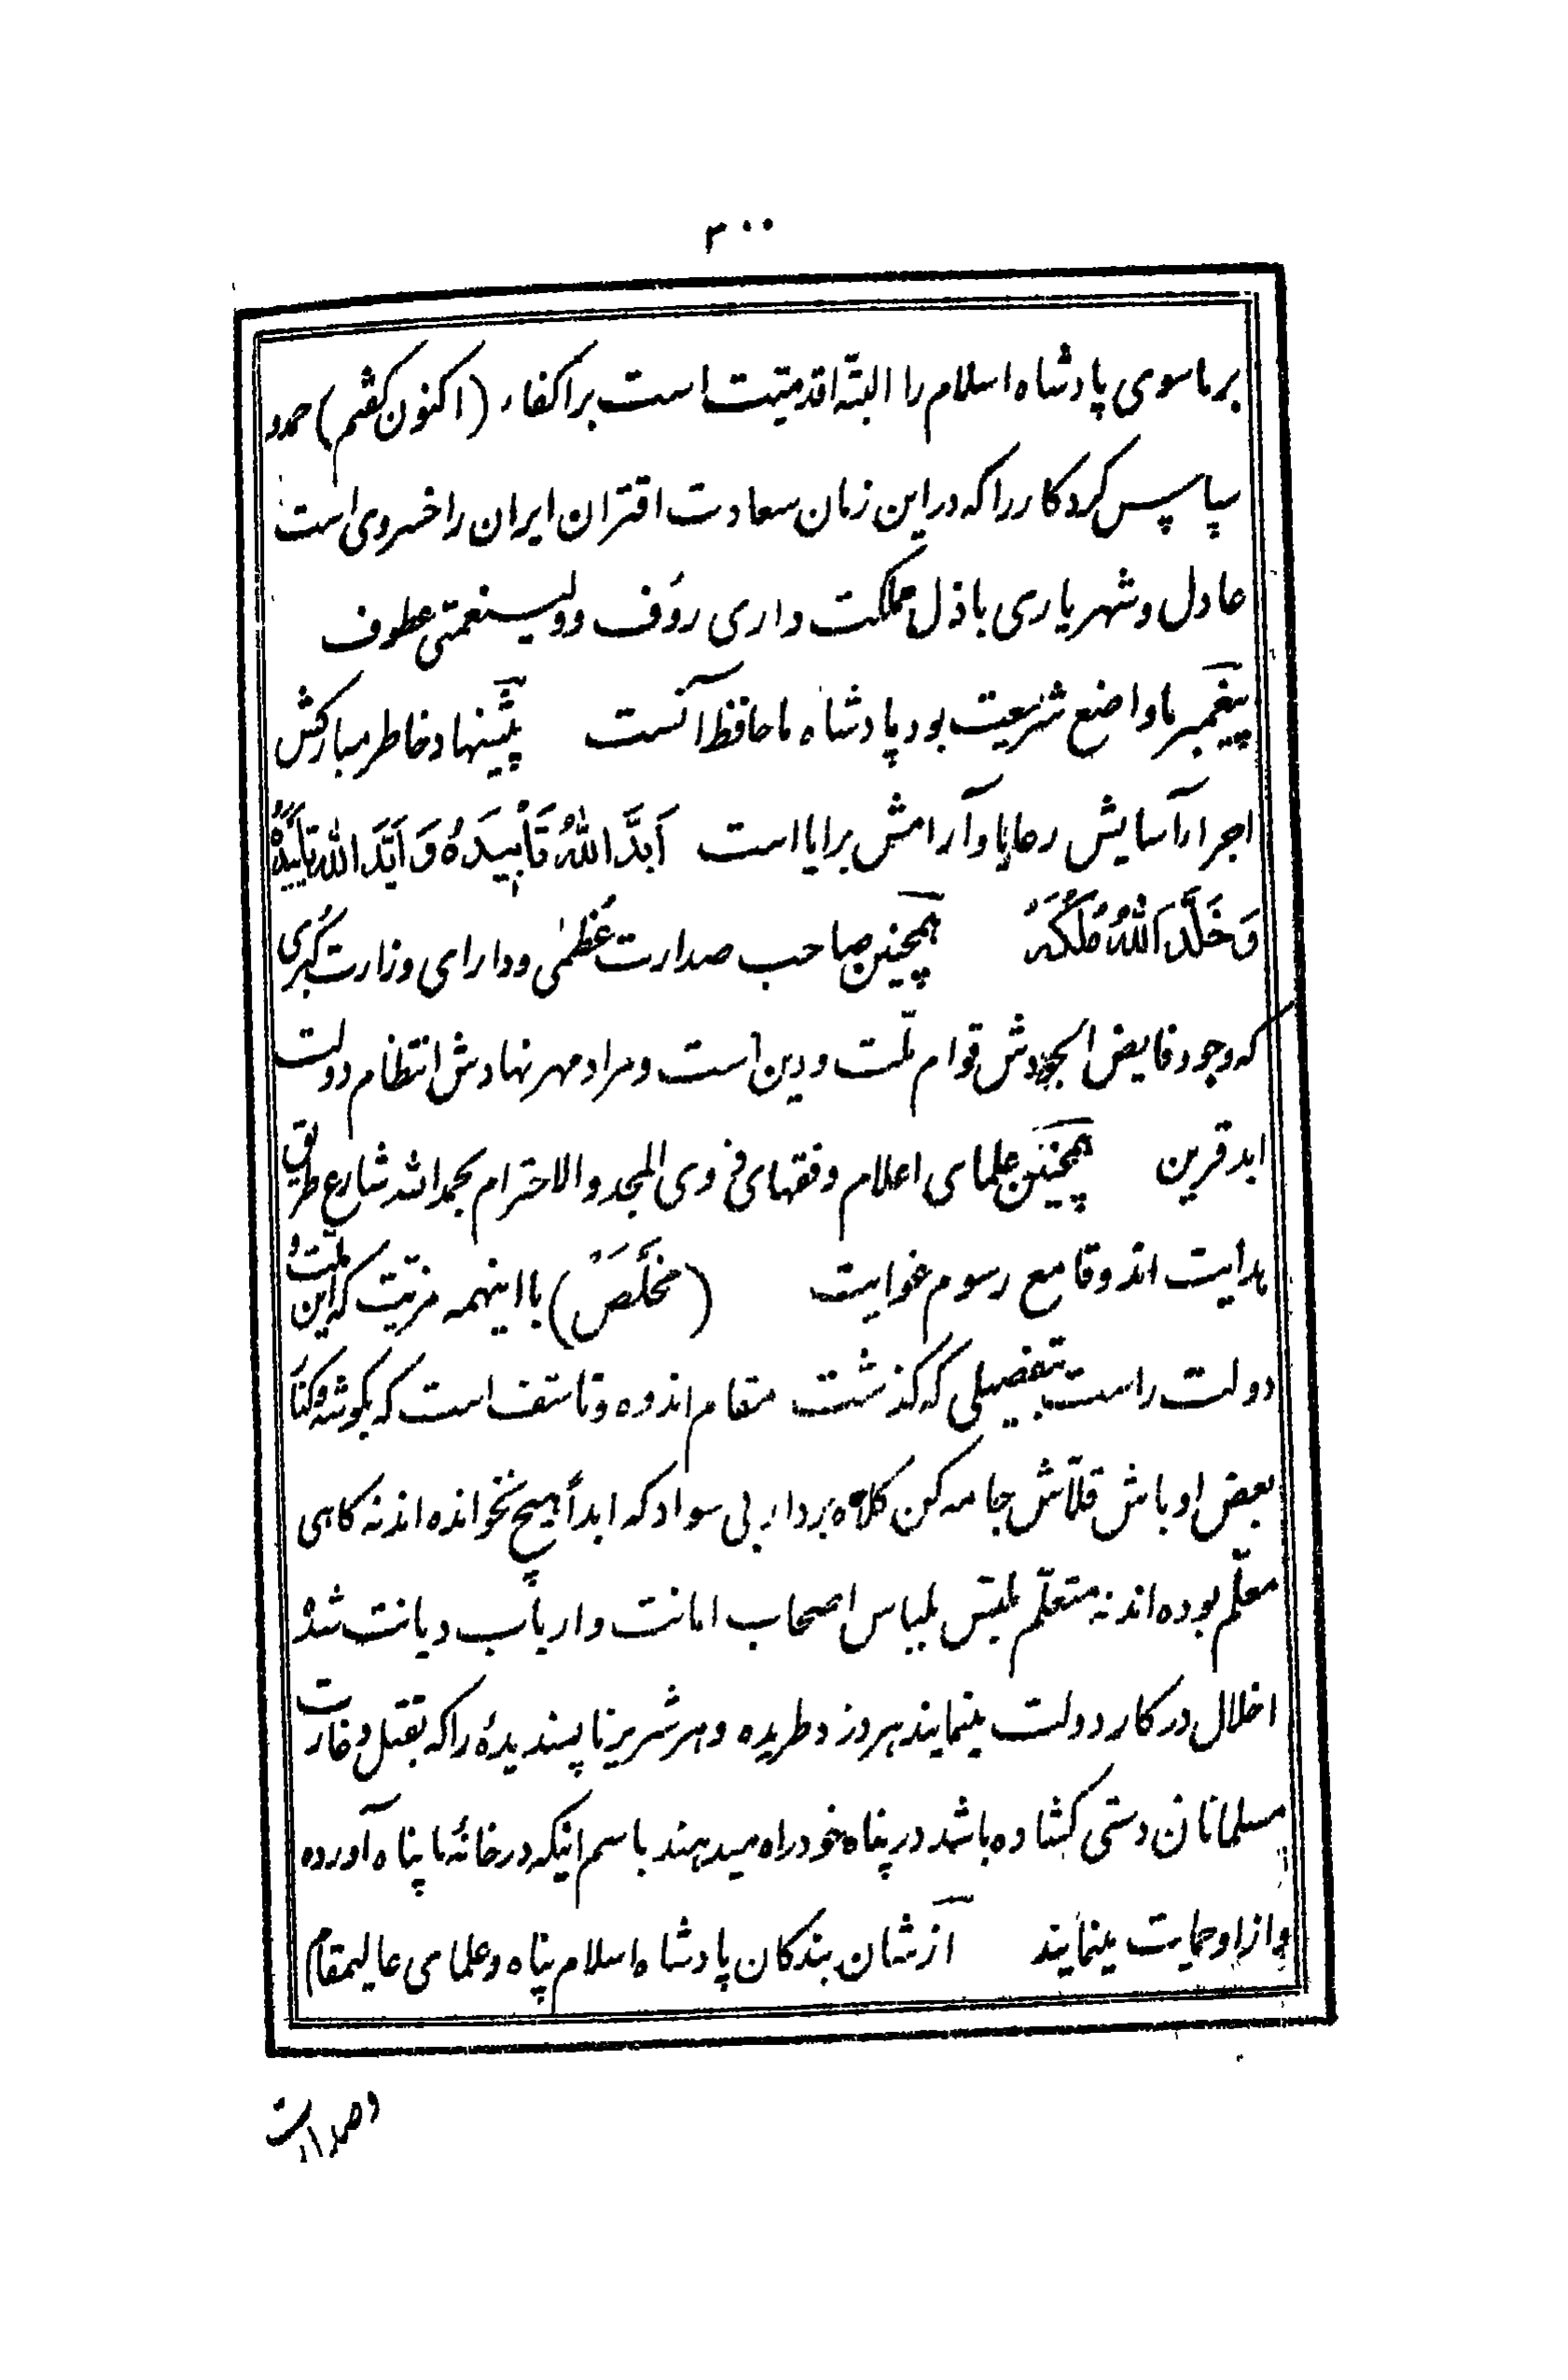 ۳۰۰
بر ماسوی پادشاه اسلام را البتّه اقدمیّت است بر اکفاء (اکنون گفتم) حمد و
سپاس کردکار را که در این زمان سعادت اقتران ایران را خسروی است
عادل و شهریاری باذل مملکت داری رؤف و ولینعمتی عطوف
پیغمبر ما واضع شریعت بود پادشاه ما حافظ آنست پیشنهاد خاطر مبارکش
اجرا آسایش رعایا و آرامش برایا است اَبَدَّ اللهُ تَأْبِیدَهُ وَ اَیَّدَ الله تَأییدَهُ
وَ خَلَّدَ اللهُ مُلْکَهُ همچنین صاحب صدارت عُظمٰی و دارای وزارت کُبری
که وجود فایض الجودش قوام ملّت و دین است و مراد مهر نهادش انتظام دولت
ابد قرین همچنین علمای اعلام و فقهای ذوی المجد والاحترام بحمدالله شارع طریق
هدایت اند و قامع رسوم غوایت (مخلَّصَ) با اینهمه مزیّت که این ملّت و
دولت راست بتفصیلی که گذشت مقام اندوه و تاسّف است که بگوشه و کنار
بعض اوباش قلّاش جامه کن کلاه بردار بی سواد که ابداً هیچ نخوانده اند نه کاهی
معلّم بوده اند نه متعلّم ملبّس بلباس اصحاب امانت و ارباب دیانت شده
اخلال در کار دولت مینمایند هر دزد طریده و هر شریر ناپسندیدهٔ را که بقتل و غارت
مسلمانان دستی گشاده باشد در پناه خود راه میدهند باسم اینکه در خانهٔ ما پناه آورده
و از او حمایت مینمایند از شان بندکان پادشاه اسلام پناه و علمای عالیمقام
و صدارت